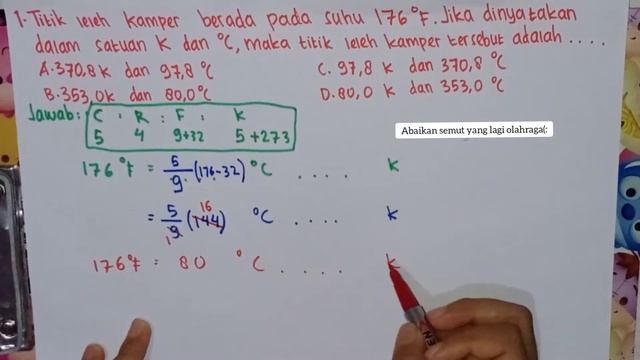 1. Titik leleh kamper berada pada suhu 176°F. Jika dinyatakan
dalam satuan K dan °C, maka titik leleh kamper tersebut adalah ....
A. 370,8 K dan 97,8 °C
C. 97,8 K dan 370,8 °C
B. 353,0 K dan 80,0 °C
D. 80,0 K dan 353,0 °C
Jawab: C : R : F : K
5 4 9+32 5+273
Abaikan semut yang lagi olahraga(:
176°F = 5/9 (176-32) °C .... K
= 5/9 (144) 16 °C .... K
1
176°F = 80 °C .... K
EN